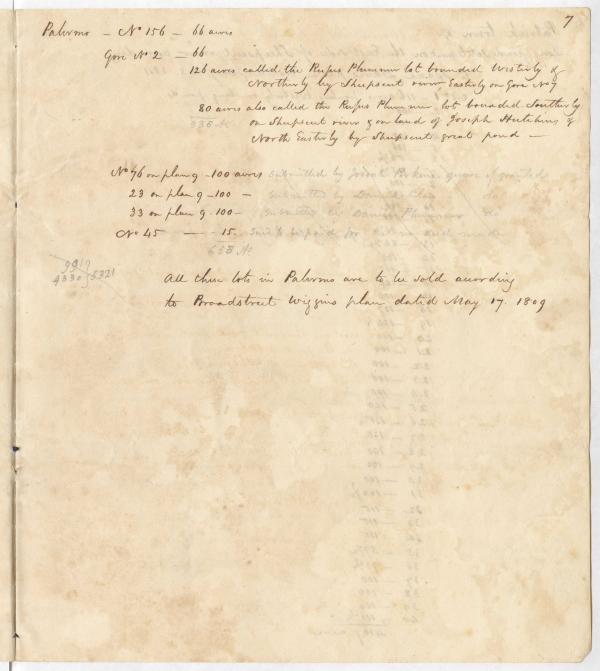 7
Palermo - No 156 - 66 acres
Gore No 2 - 66
126 acres called the Rufus Plummer lot bounded Westerly &
Northerly by Sheepscut river Easterly on Gore No 7
80 acres also called the Rufus Plummer lot bounded Southerly
on Sheepscut river & on land of Joseph Hutchins &
North Easterly by Sheepscut great pond -
No 76 on plan 9 - 100 acres Submitted by
23 on plan 9 - 100 - Submitted by Daniel
33 on plan 9 - 100 - Submitted by Daniel Plummer do
No 45 - 15.
653 A.
9917
4330 5321
All these lots in Palermo are to be sold acording
to Broadstreet Wiggins plan dated May 17. 1809